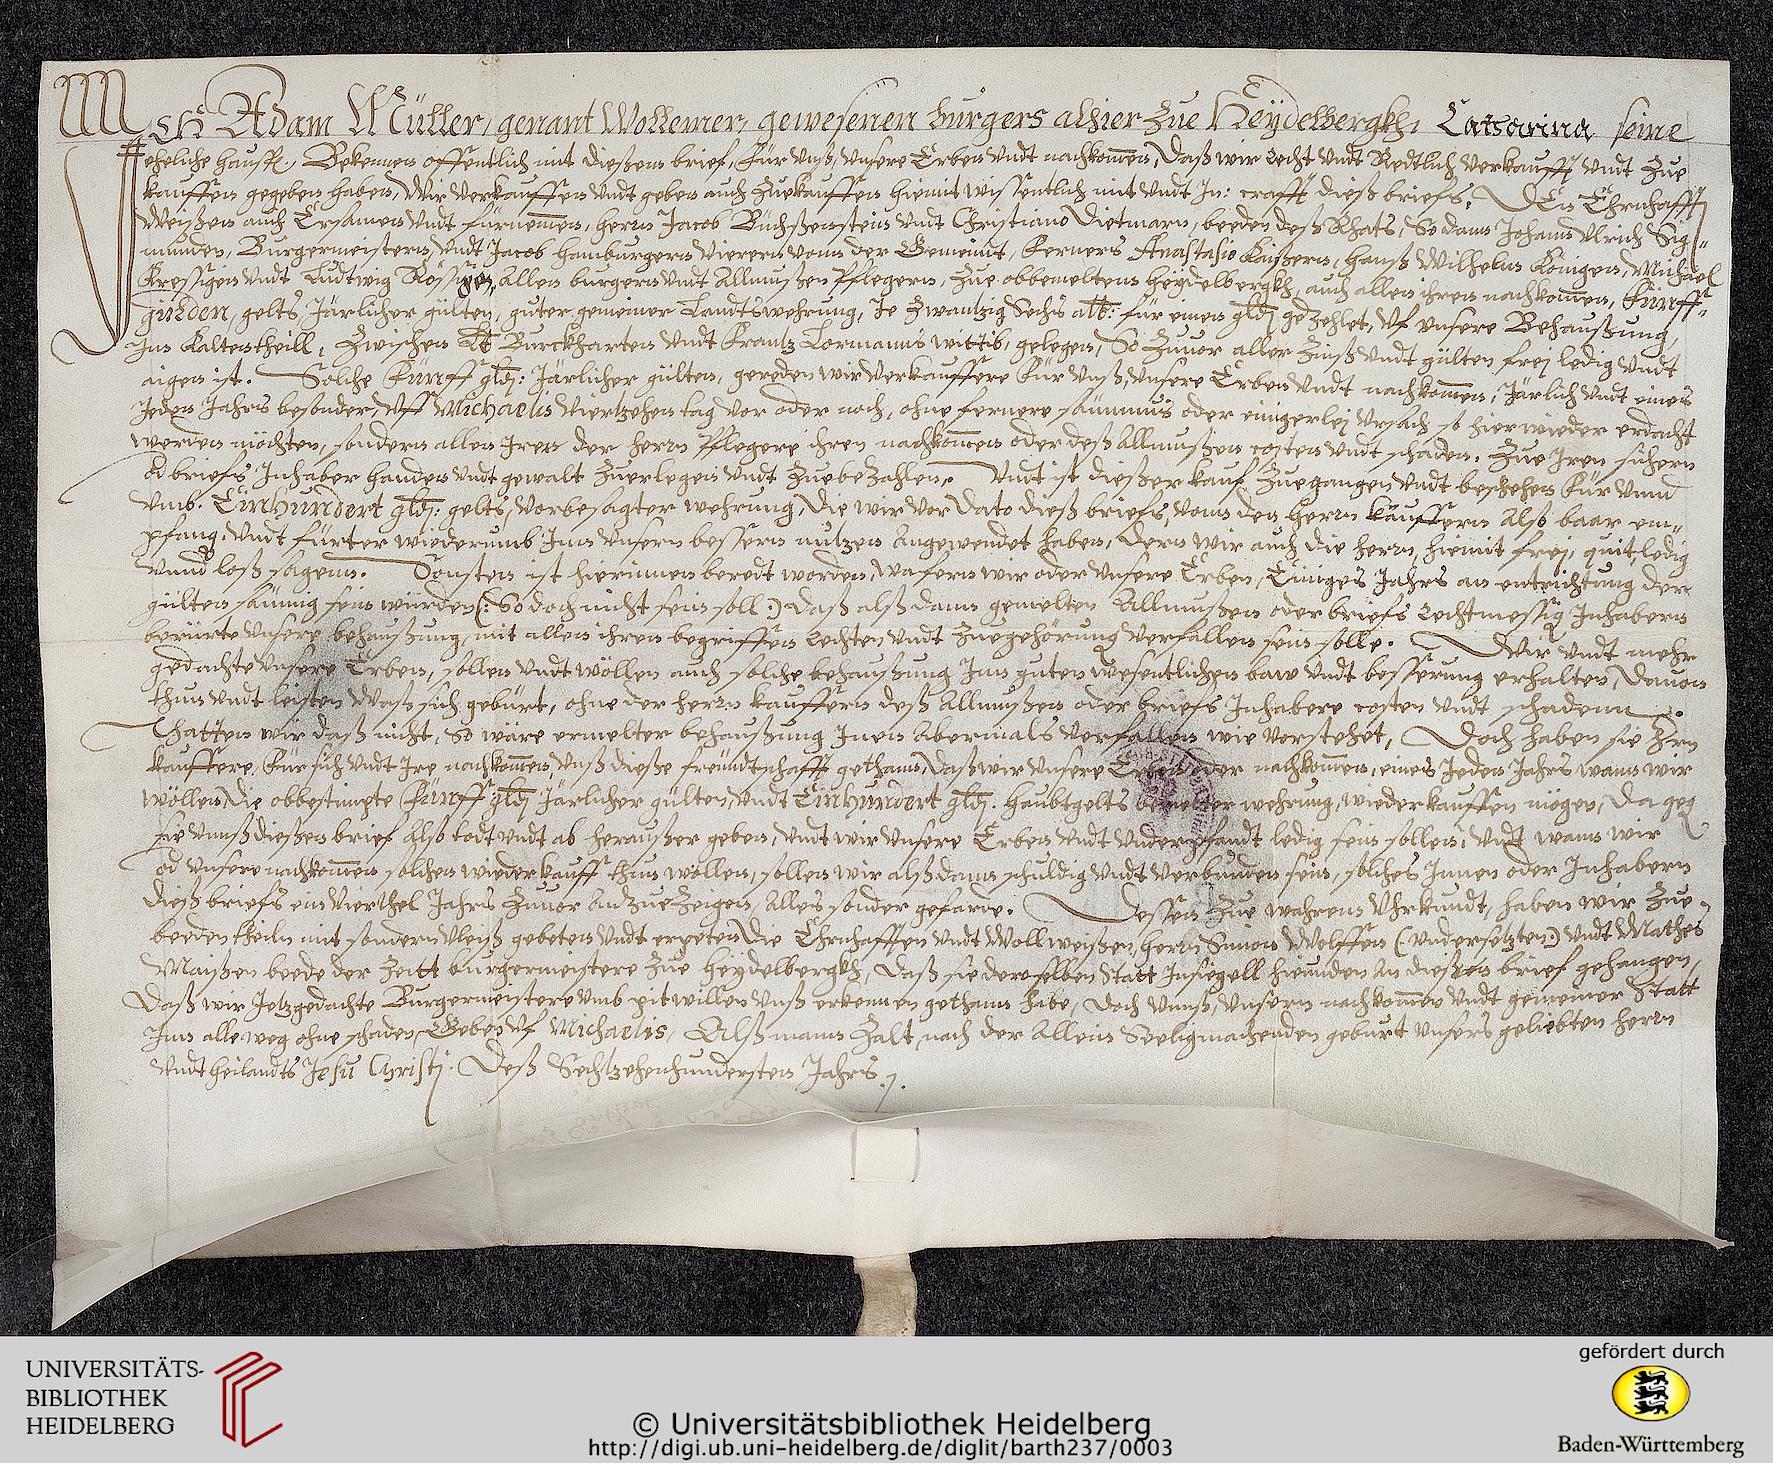 Ich Adam Müller, genant Wollemer, gewesenen burgers alhier Zue Heÿdelbergkh, Catharina seine
eheliche haußf. Bekennen offentlich mit dießem brief, Für vnß, vnsere Erben vndt nachkom̄en, Daß wir recht vndt Redtlich verkaufft vndt Zue
kauffen gegeben haben, Wir verkauffen vndt geben auch Zuekauffen hiemit wissentlich mit vndt In: crafft dieß briefs, Den Ehrnhafft
Weißen auch Ersamen vndt fürnem̄en, herrn Jacob Buchßenstein vndt Christiano Dietmarn, beeden deß Rhats, So dann Johann Ulrich Sig-
munden, Burgermeistern, vndt Jacob Hamburgern Vierern vonn der Gemeindt, Ferners Anastasio Kaißern, Hanß Wilhelm Königen, Michael
Kressigen vndt Ludtwig Rössigen, allen burgern vndt Allmußen Pflegern, Zue obbemeltem Heÿdelbergkh, auch allen ihren nachkom̄en, Fünff-
gulden, gelts, Järlicher gülten, guter gemeiner Landtswehrung, Je Zwantzig Sechs alb: für einen gldj geZehlet, Vf vnsere Behaußung,
Inn Kaltentheill, Zwischen Burckharten vndt Frantz Lormanns wittib, gelegen, So Zuuor aller Zinß vndt gülten freÿ ledig vndt
aigen ist. Solche Fünff gldj: Järlicher gülten, gereden wir Verkauffere Für vnß, vnsere Erben vndt nachkom̄en, Järlich vndt eines
Jeden Jahrs besonder, Vff Michaelis Viertzehen tag vor oder noch, ohne fernere säumnus oder einigerleÿ Vrsach so hierwieder erdacht
werden möchten, sondern allen Iren der herrn Pflegere ihren nachkom̄en oder deß Allmußen costen vndt schaden. Zue Iren sichern
od briefs Inhaber handen vndt gewalt Zuerlegen vndt ZuebeZahlen. Vndt ist dießer kauf Zuegangen vndt beschehen Für vnnd
vmb. Einhundert gldj: gelts, vorbesagter wehrung, die wir vor Dato dieß briefs, vonn den herrn käuffern Alßo baar em-
pfang. vndt fürter wiederumb Inn vnsern bessern nutzen Angewendet haben, Dern wir auch die herrn, hiemit freÿ, quit, ledig
vnnd loß sagenn. Sonsten ist hierinnen beredt worden, wafern wir oder vnsere Erben, Einiges Jahrs an entrichtung der
gülten säumig sein würden (: So doch nicht sein soll :) Daß alß dann gemelten Allmußen oder briefs rechtmessig Inhabern
berürte vnsere behaußung, mit allen ihren begriffen rechten, vndt Zuegehörung verfallen sein solle. Wir vndt mehr
gedachte vnsere Erben, sollen vndt wöllen auch solche behaußung Inn guten wesentlichen baw vndt besserung erhalten, Dauon
thun vndt leisten Waß sich gebürt, ohne der herrn kauffern deß Allmußen oder briefs Inhabere costen vndt schadenn.
Thatten wir daß nicht, So wäre ermelter behaußung Inen Abermals verfallen wie vorstehet, Doch haben sie Hrn
kauffere, Für sich vndt Ire nachkom̄en, vnß dieße freündtschafft gethann, Daß wir vnsere Erben oder nachkom̄en, eines Jeden Jahrs wann wir
wöllen, die obbestimpte Fünff gldj Järlicher gülten, vndt Einhundert gldj. Haubtgelts bemelter wehrung, wiederkauffen mögen, Da geg
sie vnnß dießen brief Alßo todt vndt ab heraußer geben, vndt wir vnsere Erben vndt vnderpfandt ledig sein sollen, vndt wann wir
od vnsere nachkom̄en solchen wiederkauff thun wöllen, sollen wir alß dann schuldig vndt verbunden sein, solches Innen oder Inhabern
dieß briefs ein Vierthel Jahrs Zuuor anZueZeigen, Alles sonder gefärde. Dessen Zue wahrem Vhrkundt, haben wir Zue-
beeden theiln mit sondern vleiß gebeten vndt erpeten Die Ehrnhafften vndt Wollweißen, herrn Simon Wolffen (: vndersetzten :) vndt Mathes
Maißen beede der Zeitt burgermeistere Zue Heÿdelbergkh, Daß sie derselben Statt Insiegell hieunden an dießen brief gehangen,
Daß wir Jetzgedachte Burgermeistere vmb pit willen vnß erkennen gethann habe, Doch vnnß, vnsern nachkom̄en vndt gemeiner Statt
Inn alleweg ohne schaden, Geben Vf Michaelis, Alß mann Zalt nach der Allein Seeligmachenden geburt vnsers geliebten herrn
vndt heilandts Jesu Christj. Deß Sechtzehenhundersten Jahrs.
UNIVERSITÄTS-
BIBLIOTHEK
HEIDELBERG
© Universitätsbibliothek Heidelberg
http://digi.ub.uni-heidelberg.de/diglit/barth237/0003
gefördert durch
Baden-Württemberg